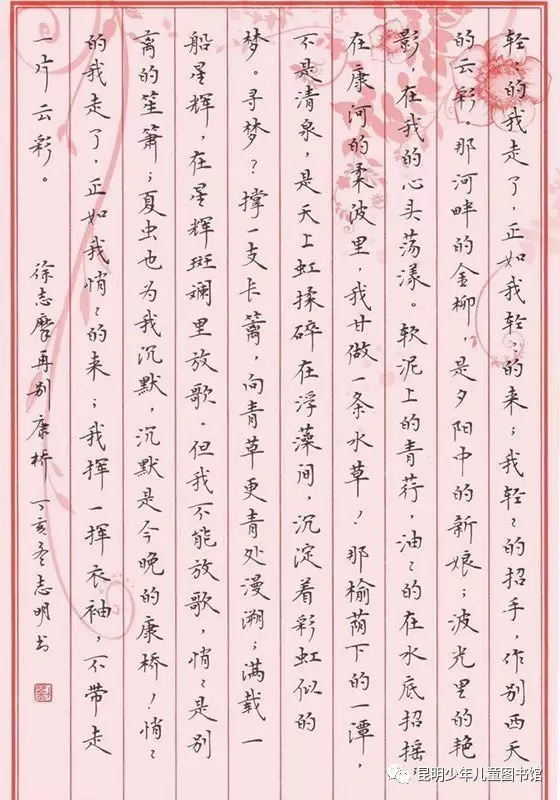 轻〻的我走了，正如我轻〻的来；我轻〻的招手，作别西天
的云彩。那河畔的金柳，是夕阳中的新娘；波光里的艳
影，在我的心头荡漾。软泥上的青荇，油〻的在水底招摇，
在康河的柔波里，我甘做一条水草！那榆荫下的一潭，
不是清泉，是天上虹揉碎在浮藻间，沉淀着彩虹似的
梦。寻梦？撑一支长篙，向青草更青处漫溯；满载一
船星辉，在星辉斑斓里放歌。但我不能放歌，悄〻是别
离的笙箫；夏虫也为我沉默，沉默是今晚的康桥！悄〻
的我走了，正如我悄〻的来；我挥一挥衣袖，不带走
一片云彩。
徐志摩再别康桥 丁亥冬志明书
昆明少年儿童图书馆